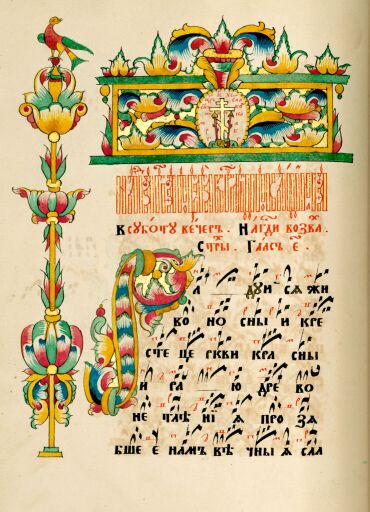 В сꙋботꙋ вечеръ . На гд҇и возва .
Стры . Гласъ е .
Ра дꙋи сѧ жи
во но сны и кре
сте це ркви кра сны
и ра ю дре во
не тлѣ нї ѧ про зѧ
бше е намъ вѣ чны ѧ сла